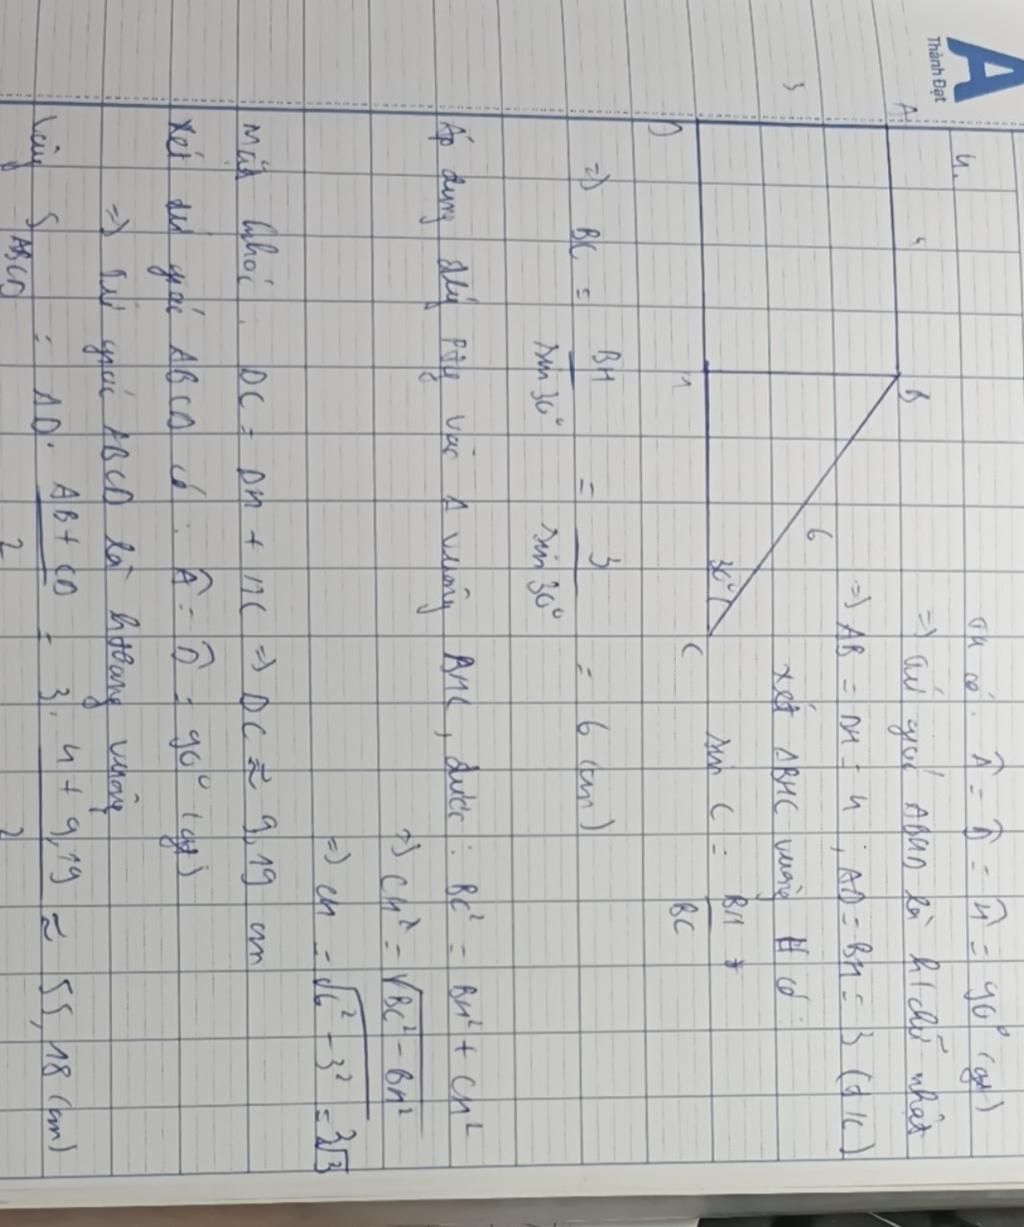 A
Thành Đạt
4.
Ta có: Â = D̂ = Ĥ = 90° (gt)
=) tứ giác ABHD là h/chữ nhật
=) AB = DH = 4 ; AD = BH = 3 (t/c)
Xét ΔBHC vuông H có:
sin C = BH / BC
A
4
B
3
6
30°
D
H
C
=) BC = BH / sin30° = 3 / sin30° = 6 (cm)
Áp dụng đlý Pytg vào Δ vuông BHC, được: BC² = BH² + CH²
=) CH² = √BC² - BH²
=) CH = √6² - 3² = 3√3
Mặt khác: DC = DH + HC =) DC ≈ 9,19 cm
Xét tứ giác ABCD có: Â = D̂ = 90° (gt)
=) tứ giác ABCD là hthang vuông
S ABCD = AD. AB + CD / 2 = 3. 4 + 9,19 / 2 ≈ 55,18 (cm)